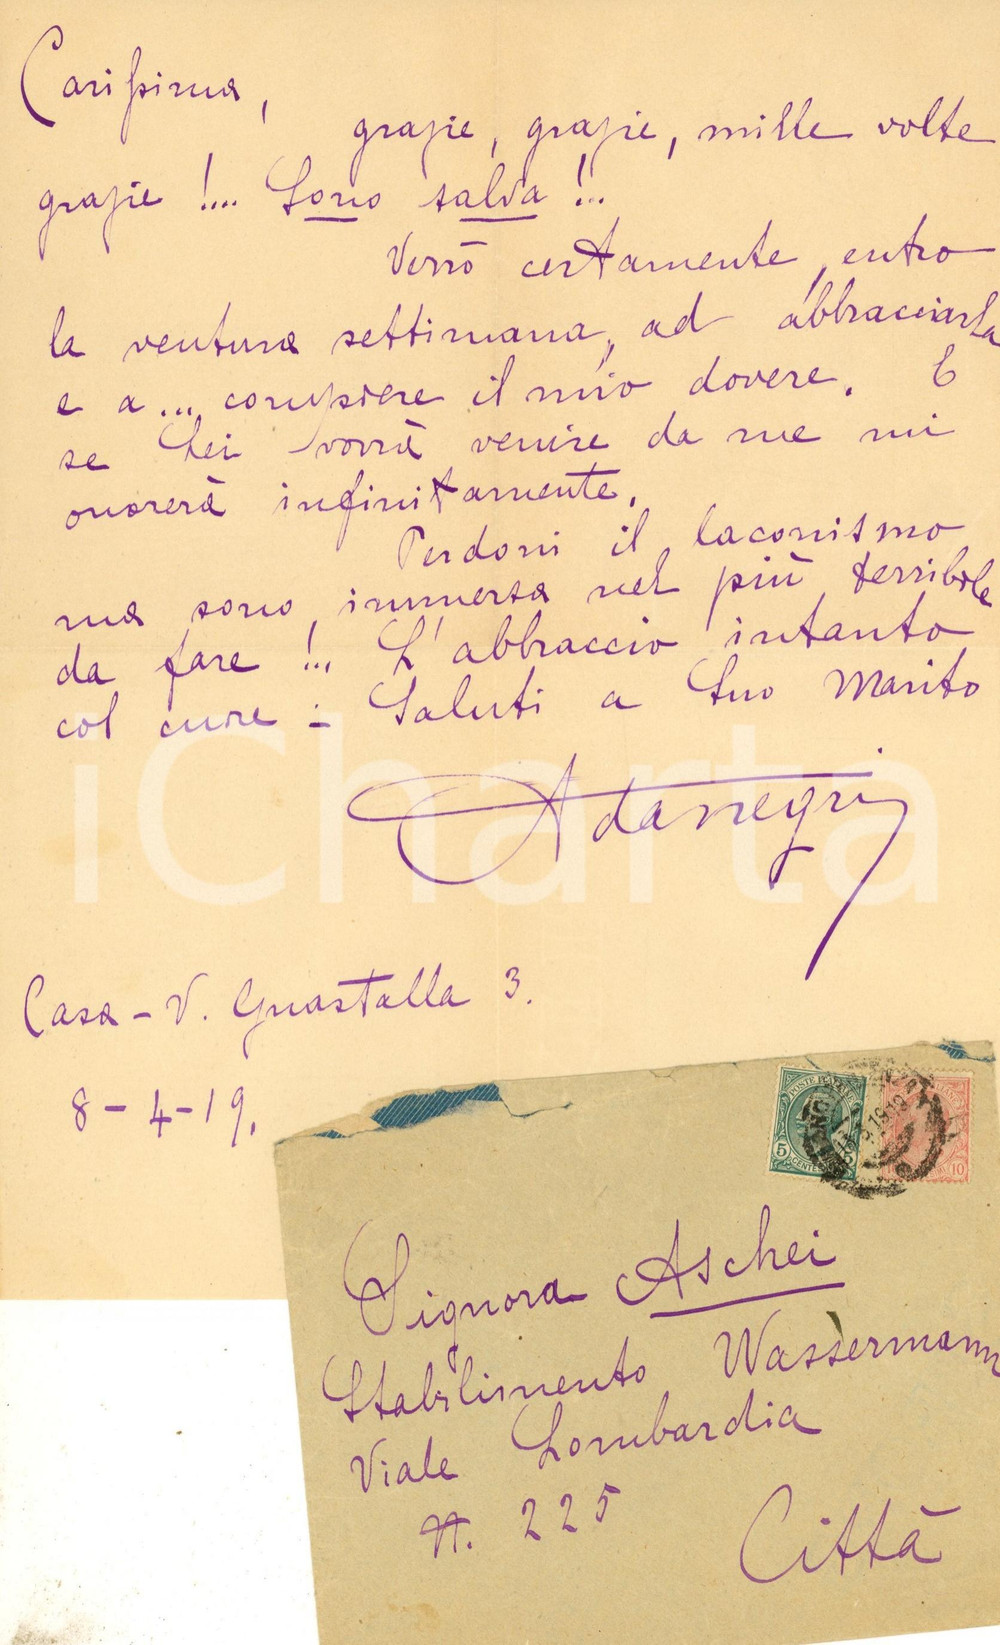 Carissima,
grazie, grazie, mille volte
grazie!.... Sono salva!...
Verrò certamente, entro
la ventura settimana, ad abbracciarla
e a... compiere il mio dovere. E
se Lei vorrà venire da me mi
onorerà infinitamente.
Perdoni il laconismo
ma sono immersa nel più terribile
da fare!... L'abbraccio intanto
col cuore - Saluti a Suo Marito
Adanegri
Casa - V. Guastalla 3.
8-4-19.
iCharta
POSTE
5 CENTES
10
Signora Aschei
Stabilimento Wassermann
Viale Lombardia
N. 225
Città